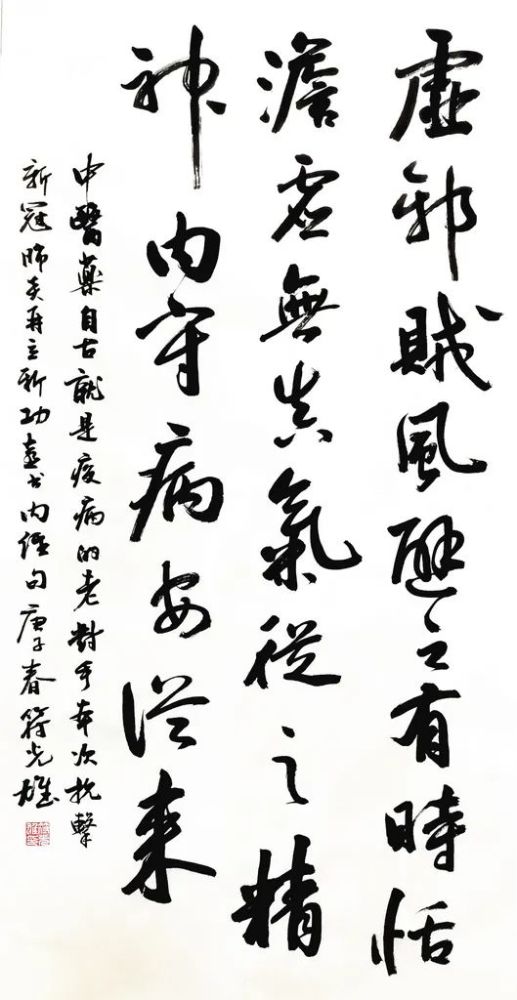 虛邪賊風避之有時恬
澹虛無真氣從之精
神內守病安從來
中醫藥自古就是疫病的老對手本次抗擊
新冠肺炎再立新功喜书內經句庚子春符光雄